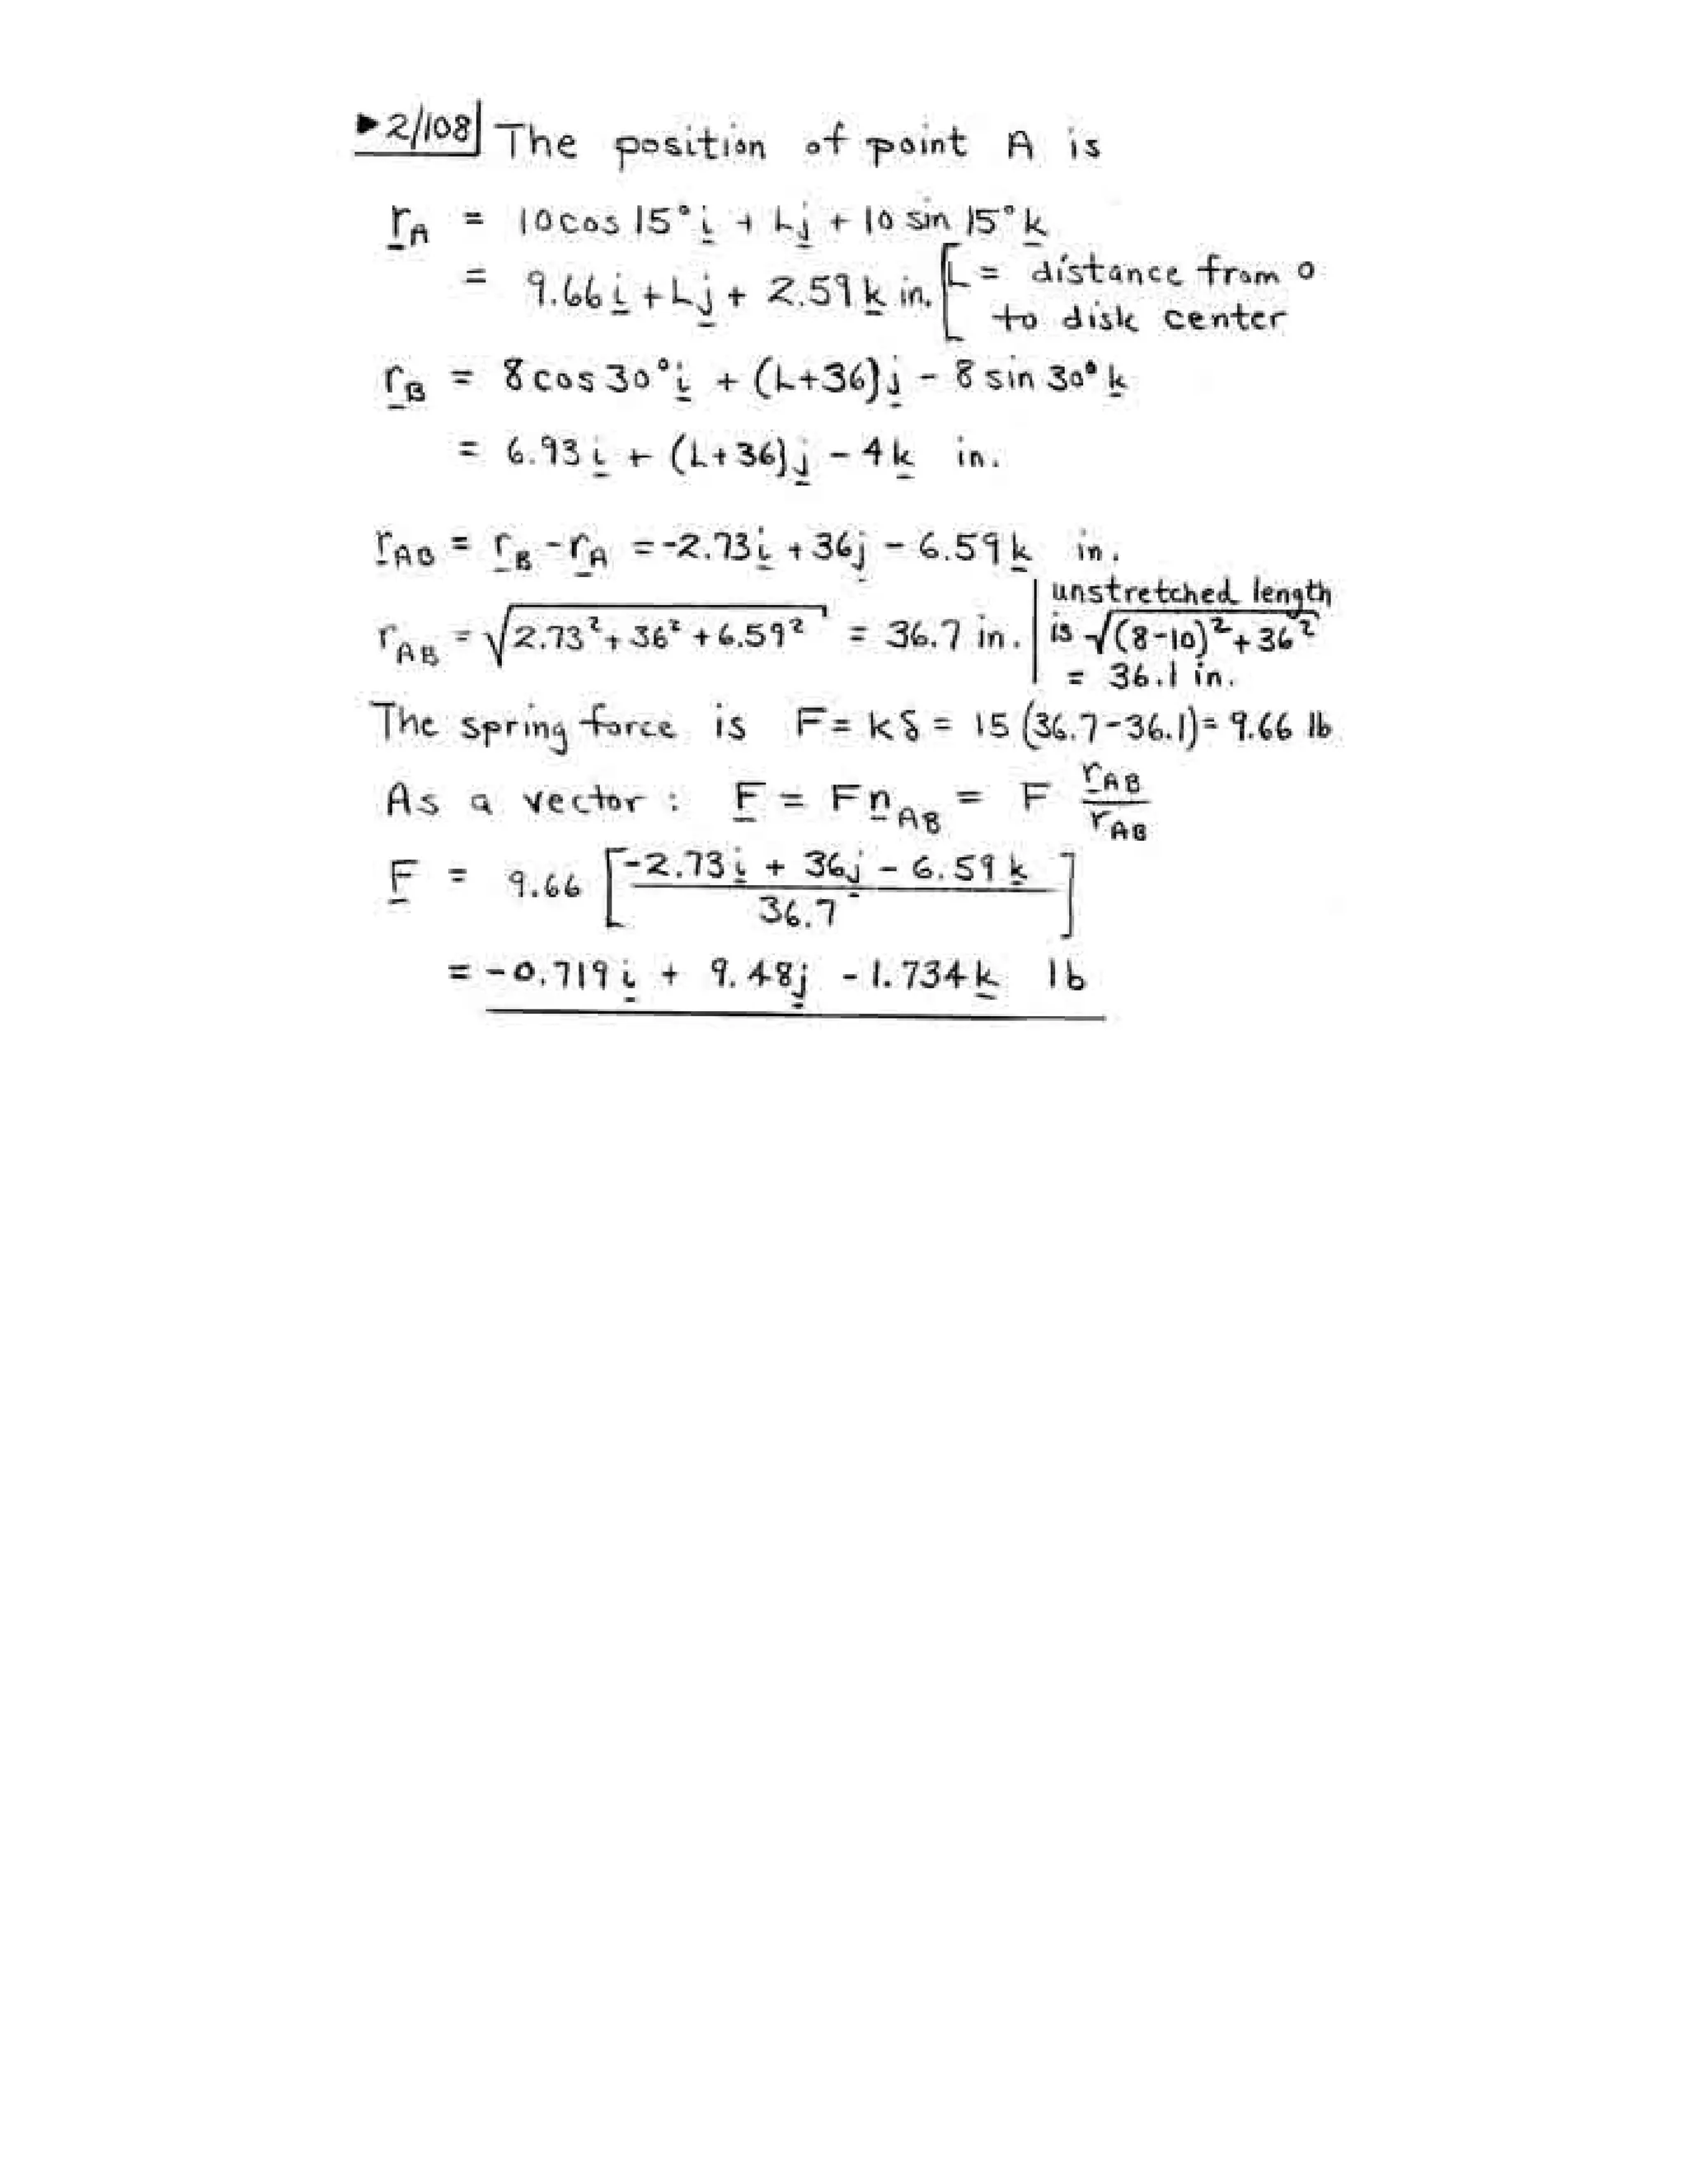 ▸2/108 The position of point A is
r_A = 10 cos 15° i + Lj + 10 sin 15° k
= 9.66 i + Lj + 2.59 k in. [L = distance from o
to disk center
r_B = 8 cos 30° i + (L+36) j - 8 sin 30° k
= 6.93 i + (L+36) j - 4 k in.
r_AB = r_B - r_A = -2.73 i + 36 j - 6.59 k in.
r_AB = √(2.73² + 36² + 6.59²) = 36.7 in. | unstretched length
is √((8-10)² + 36²)
= 36.1 in.
The spring force is F = kδ = 15 (36.7 - 36.1) = 9.66 lb
As a vector : F = F n_AB = F r_AB / r_AB
F = 9.66 [ (-2.73 i + 36 j - 6.59 k) / 36.7 ]
= -0.719 i + 9.48 j - 1.734 k lb